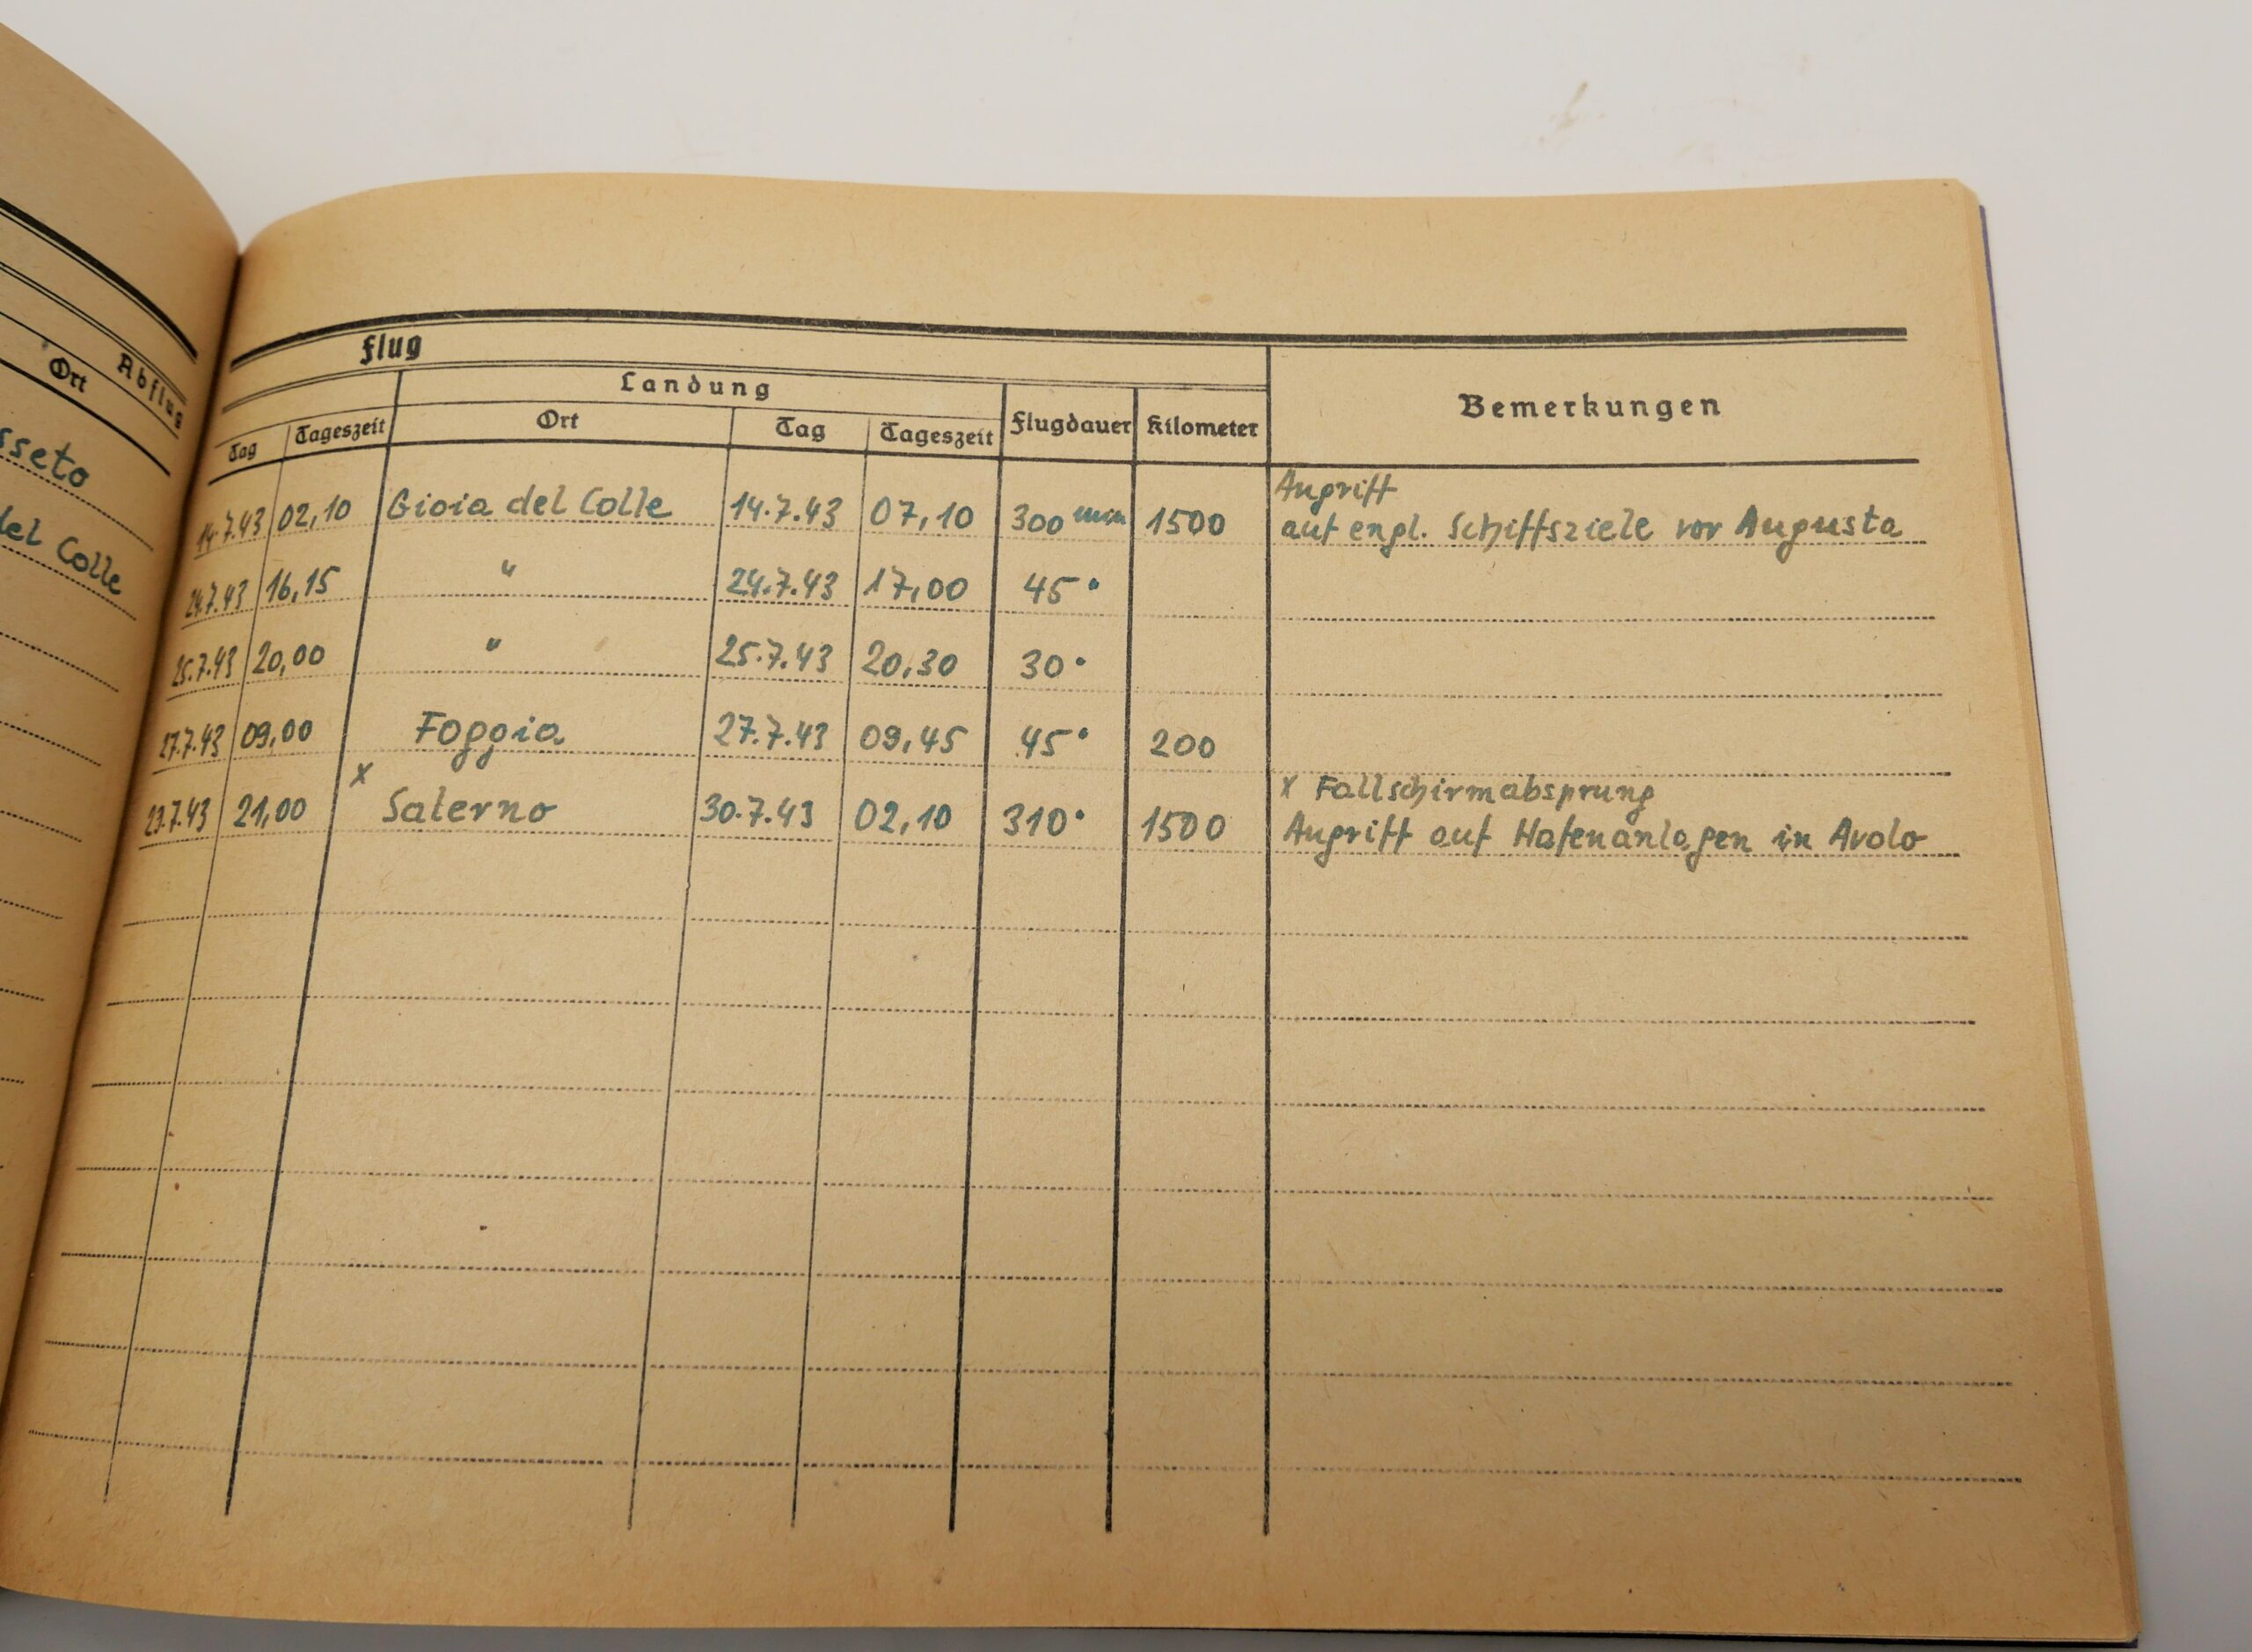 Abflug
Ort
sseto
del Colle
Flug
Landung
Bemerkungen
Tag Tageszeit Ort Tag Tageszeit Flugdauer Kilometer
Angriff
14.7.43 02,10 Gioia del Colle 14.7.43 07,10 300 min 1500 auf engl. Schiffsziele vor Augusta
24.7.43 16,15 " 24.7.43 17,00 45 "
25.7.43 20,00 " 25.7.43 20,30 30 "
27.7.43 09,00 Foggia 27.7.43 09,45 45 " 200
x x Fallschirmabsprung
29.7.43 21,00 Salerno 30.7.43 02,10 310 " 1500 Angriff auf Hafenanlagen in Avolo